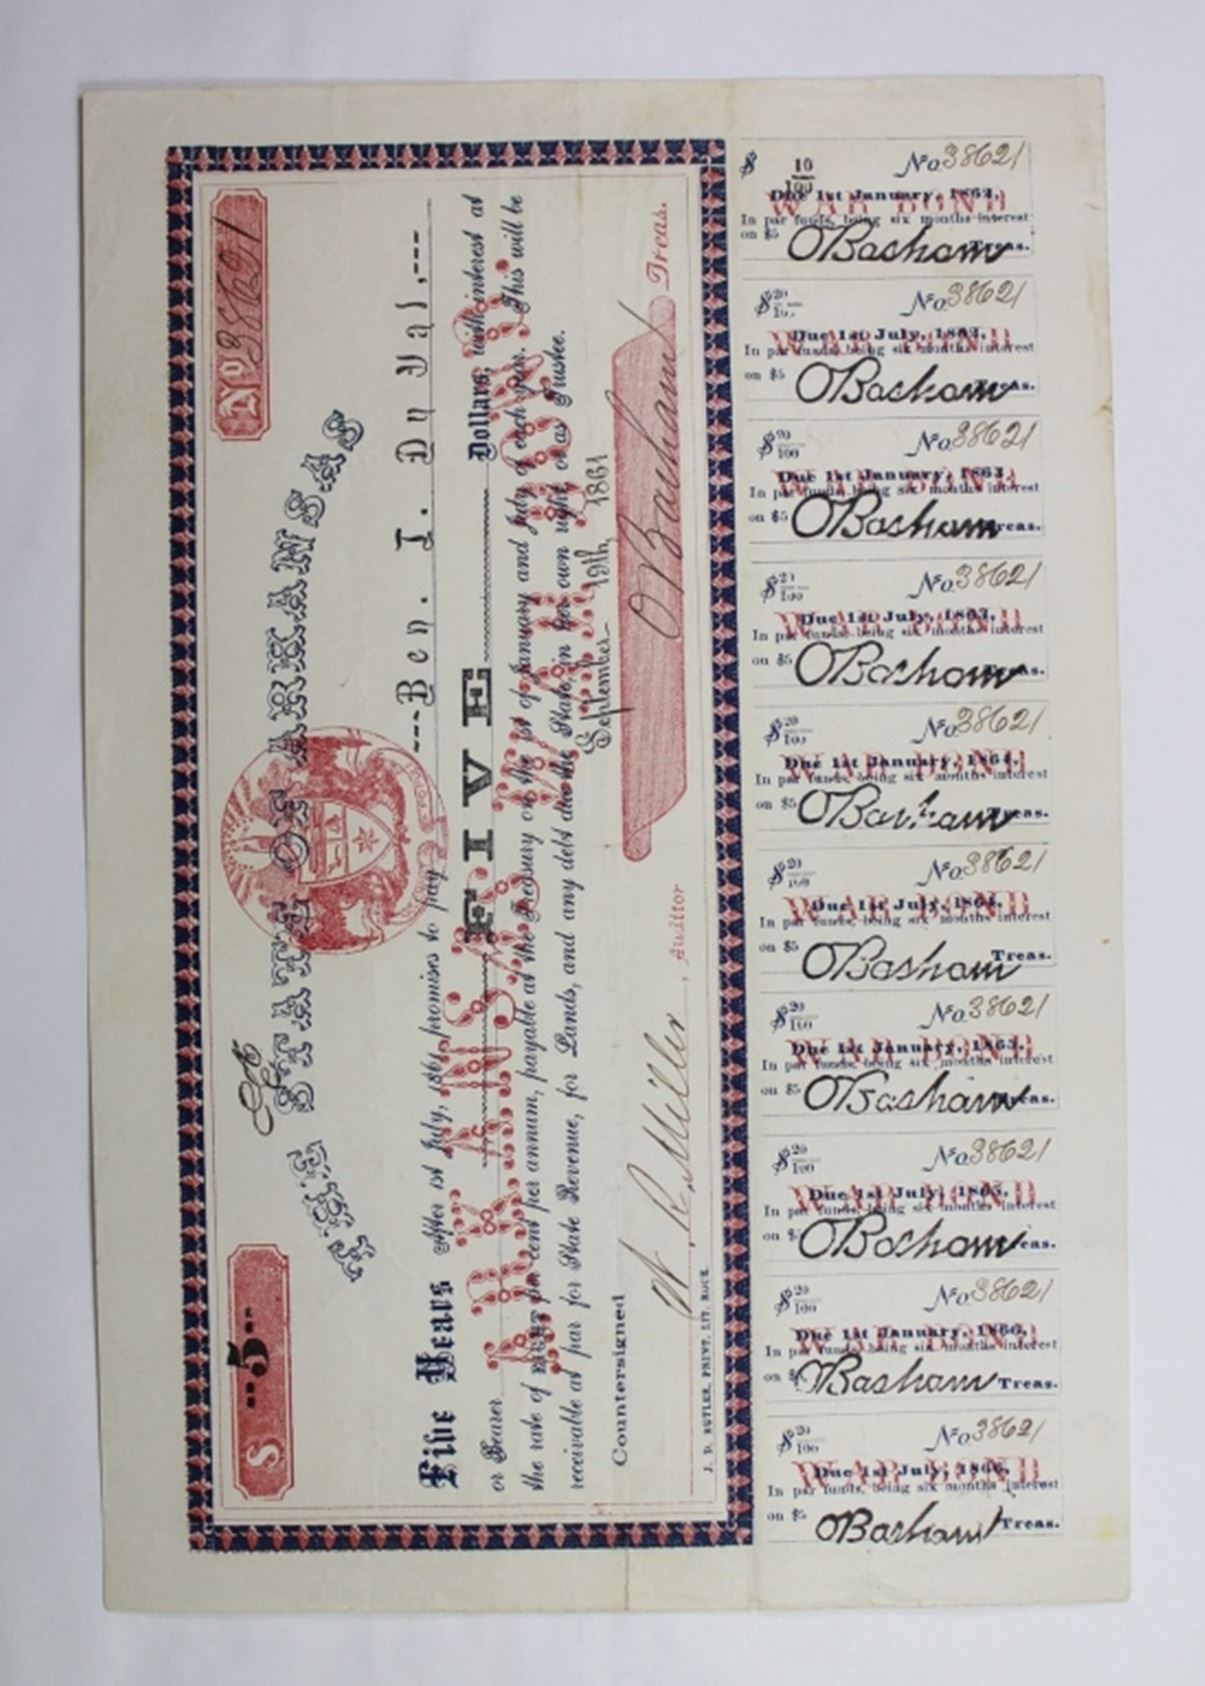 $ "5"
No 38621
THE STATE OF ARKANSAS
Five Years After 1st July, 1861, promises to pay ---Ben. T. Du Val,---
or Bearer FIVE Dollars, with interest at
the rate of EIGHT per cent per annum, payable at the Treasury on the 1st of January and July of each year. This will be
receivable at par for State Revenue, for Lands, and any debt due the State, in her own right, or as Trustee.
ARKANSAS
September 19th, 1861
Countersigned
W. R. Miller, Auditor
O Basham Treas.
J. D. BUTLER, PRINT. LIT. ROCK.
$ 10/100 No. 38621
Due 1st January, 1862,
WAR BOND
In par funds, being six months interest
on $5 O Basham Treas.
$ 20/100 No. 38621
Due 1st July, 1862,
WAR BOND
In par funds, being six months interest
on $5 O Basham Treas.
$ 20/100 No. 38621
Due 1st January, 1863,
WAR BOND
In par funds, being six months interest
on $5 O Basham Treas.
$ 20/100 No. 38621
Due 1st July, 1863,
WAR BOND
In par funds, being six months interest
on $5 O Basham Treas.
$ 20/100 No. 38621
Due 1st January, 1864,
WAR BOND
In par funds, being six months interest
on $5 O Basham Treas.
$ 20/100 No. 38621
Due 1st July, 1864,
WAR BOND
In par funds, being six months interest
on $5 O Basham Treas.
$ 20/100 No. 38621
Due 1st January, 1865,
WAR BOND
In par funds, being six months interest
on $5 O Basham Treas.
$ 20/100 No. 38621
Due 1st July, 1865,
WAR BOND
In par funds, being six months interest
on $5 O Basham Treas.
$ 20/100 No. 38621
Due 1st January, 1866,
WAR BOND
In par funds, being six months interest
on $5 O Basham Treas.
$ 20/100 No. 38621
Due 1st July, 1866,
WAR BOND
In par funds, being six months interest
on $5 O Basham Treas.